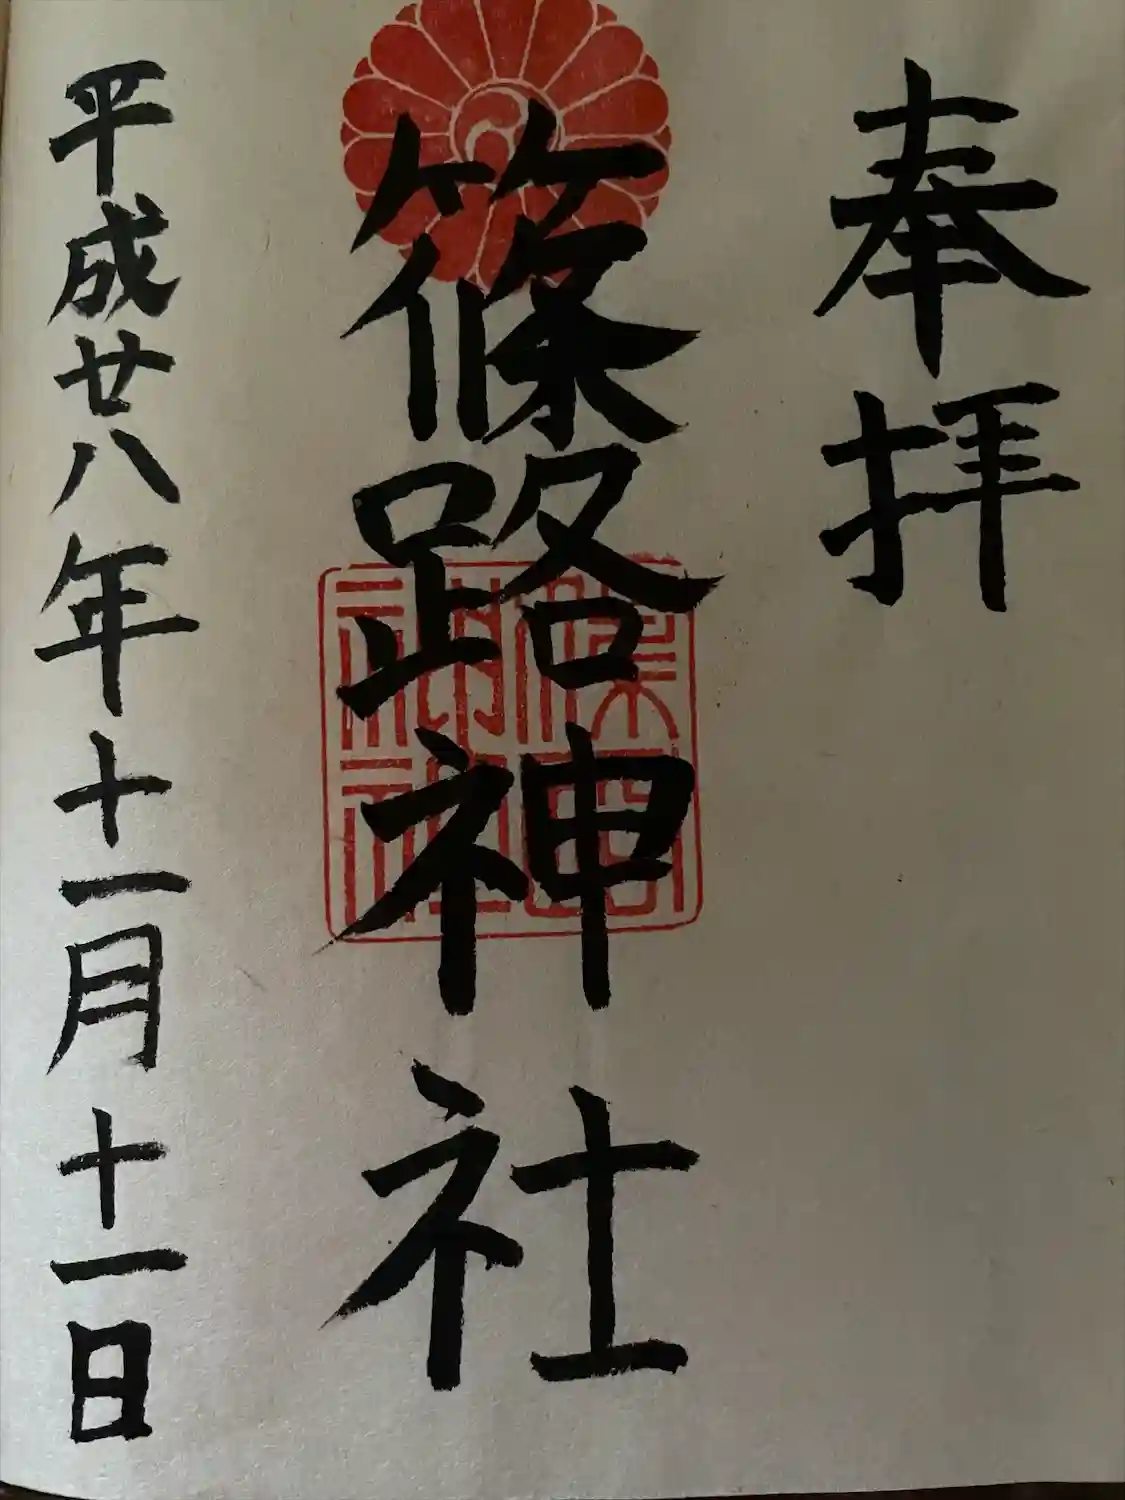 奉拝
篠路神社
篠路神社
平成廿八年十一月十一日